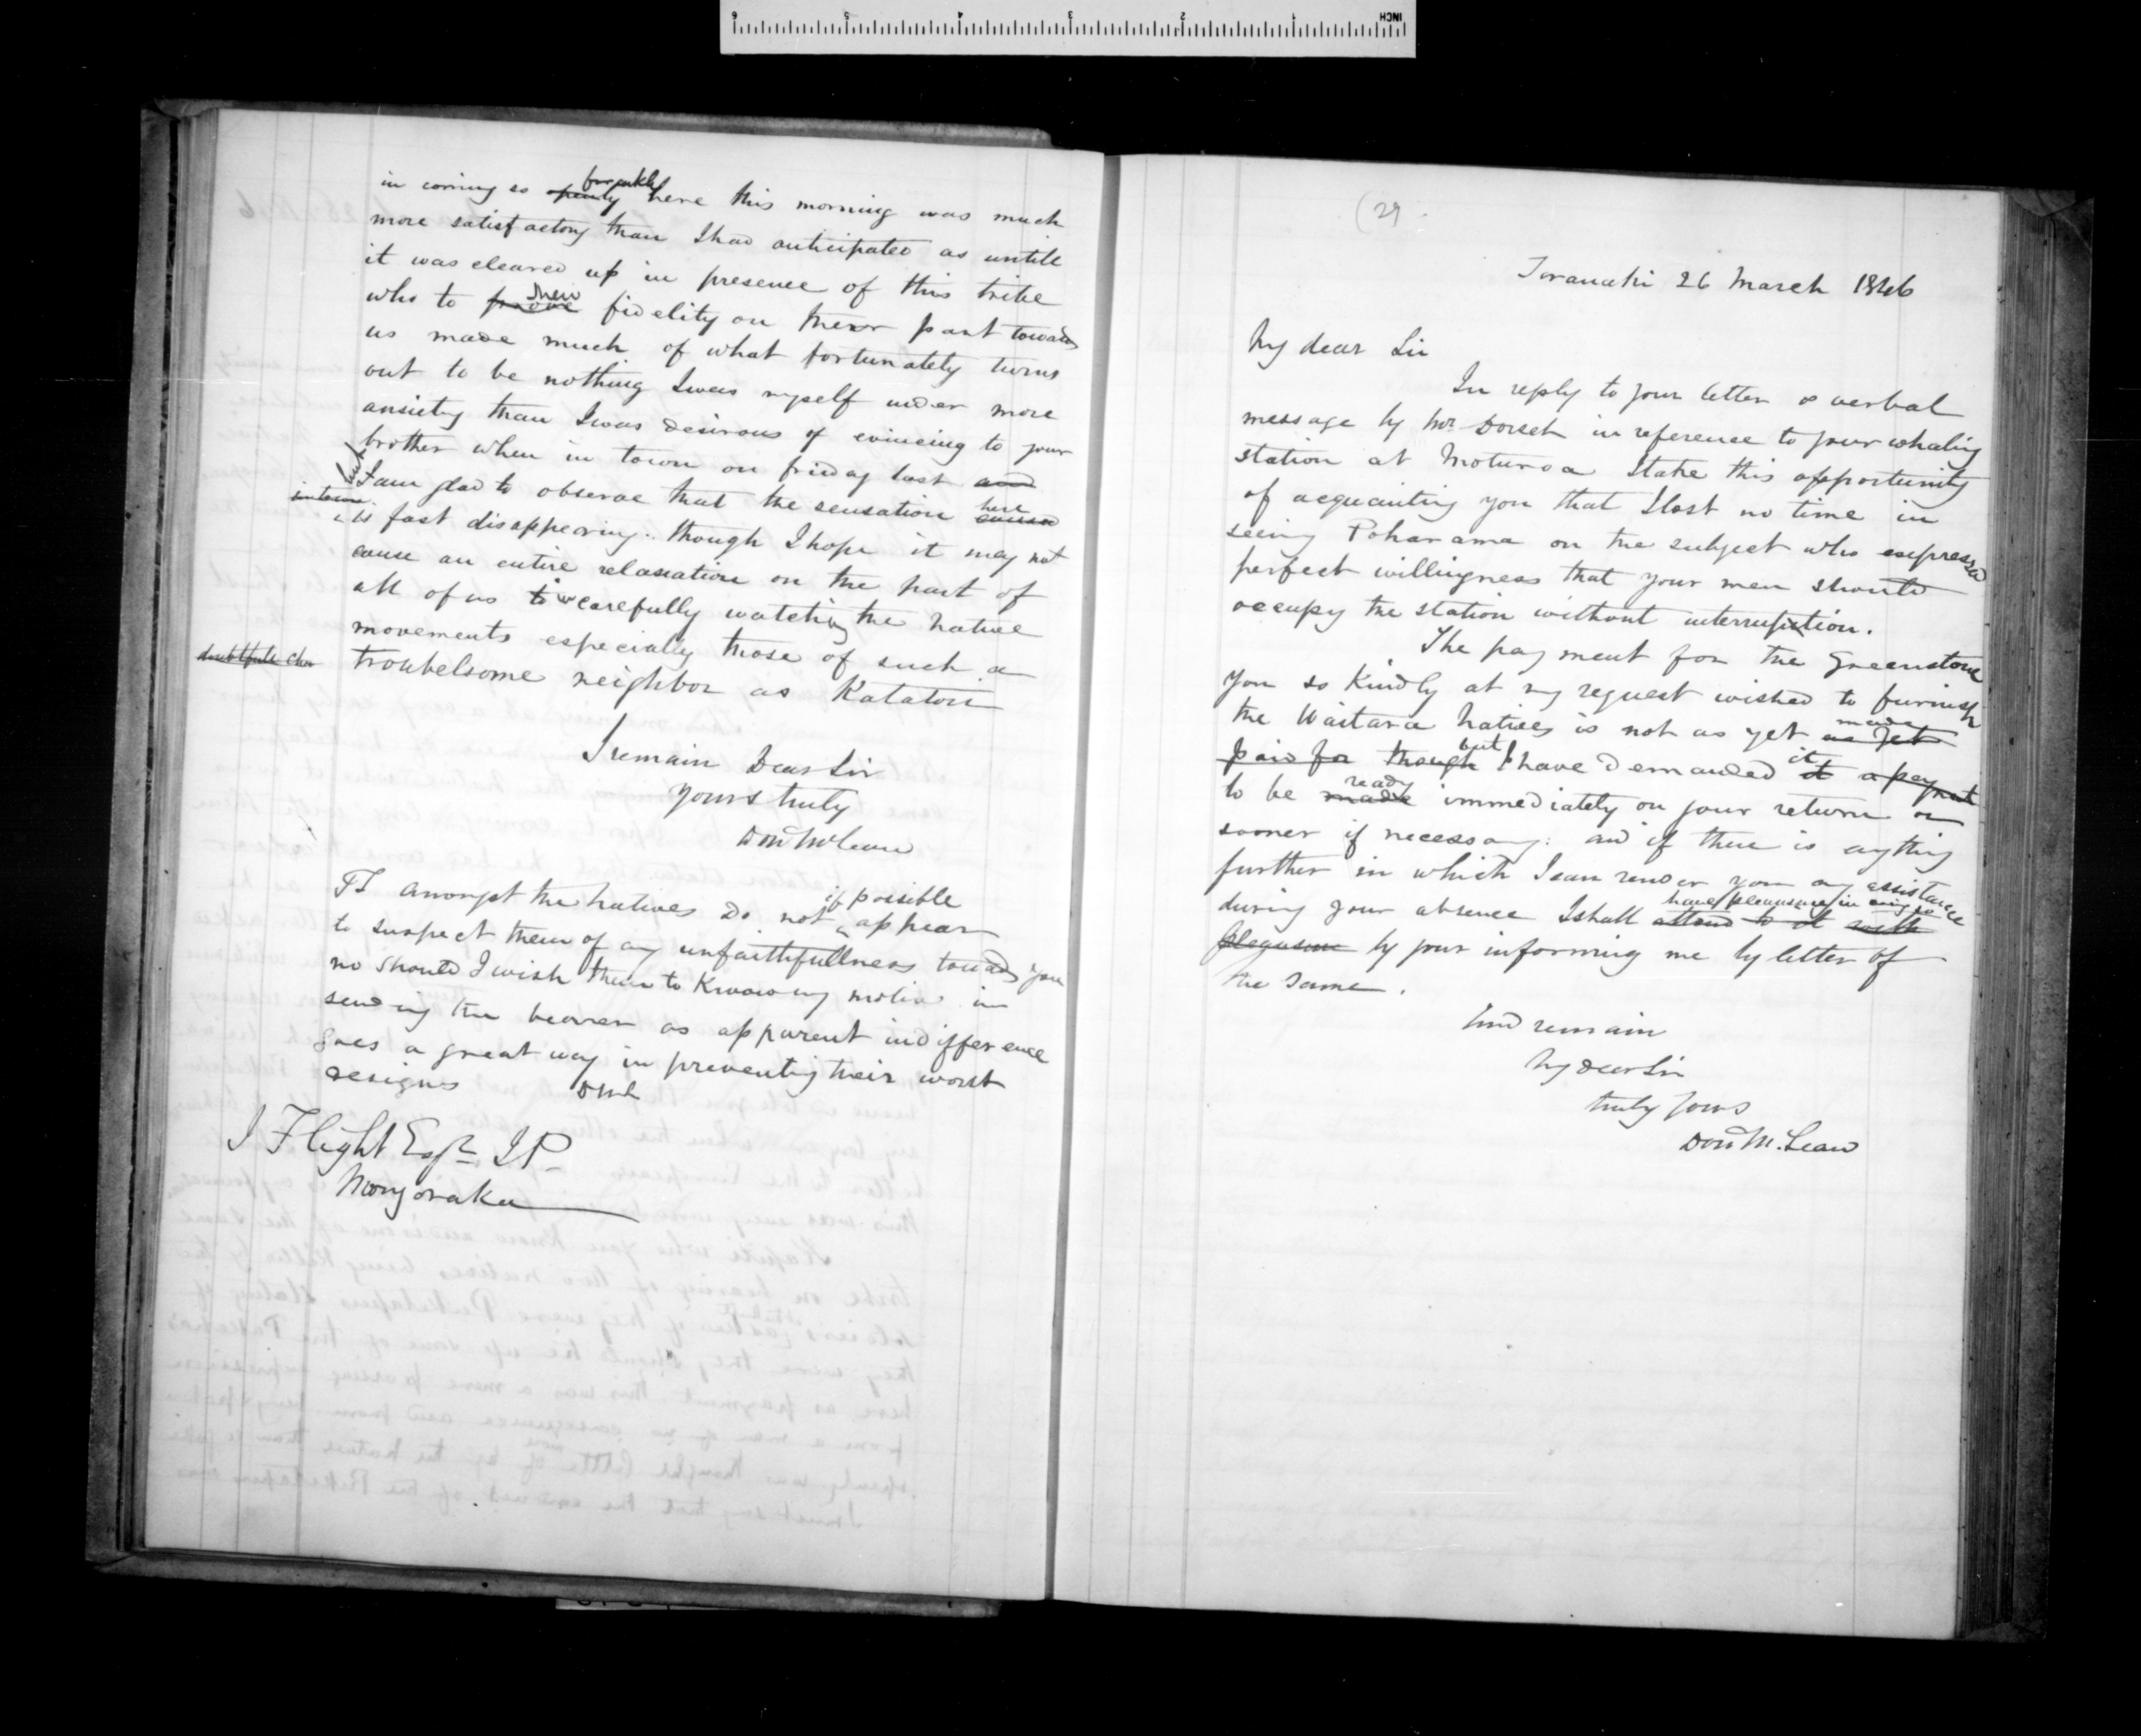 in coming so openly frankly here this morning was much
more satisfactory than I had anticipated as untill
it was cleared up in presence of this tribe
who to prove shew fidelity on their part towards
us made much of what fortunately turns
out to be nothing I was myself under more
anxiety than I was desirous of evincing to your
brother when in town on friday last and
but I am glad to observe that the sensation caused here
in town is fast disappearing. though I hope it may not
cause an entire relaxation on the part of
all of us to in carefully watching the native
movements especially those of such a
doubtfull
troubelsome neighbor as Katatori
I remain Dear Sir
yours truly
Dond McLean
PS Amongst the natives do not if possible appear
to suspect them of any unfaithfullness towards you
no should I wish them to know my motive in
sending the bearer as apparent indifference
goes a great way in preventing their worst
designs DMcL
J Flight Esqr JP
Mangoraka
(29
Taranaki 26 March 1846
My dear Sir
In reply to your letter & verbal
message by Mr Dorset in reference to your whaling
station at Moturoa I take this opportunity
of acquainting you that I lost no time in
seeing Poharama on the subject who expressed
perfect willingness that your men should
occupy the station without interruption.
The payment for the Greenstone
you so kindly at my request wished to furnish
the Waitara Natives is not as yet as yet made
paid for though but I have demanded it it a payment
to be made ready immediately on your return or
sooner if necessary: and if there is anything
further in which I can render you any assistance
during your absence I shall attend to it with have pleasure in
pleasure by your informing me by letter of
the same.
And remain
My dear Sir
truly yours
Dond McLean
6 5 4 3 2 1 INCH